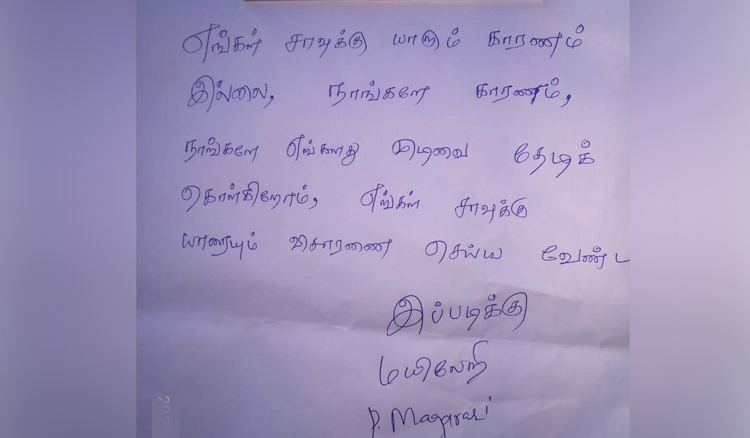 எங்கள் சாவுக்கு யாரும் காரணம்
இல்லை, நாங்களே காரணம்,
நாங்களே எங்களது முடிவை தேடிக்
கொள்கிறோம், எங்கள் சாவுக்கு
யாரையும் விசாரணை செய்ய வேண்ட
இப்படிக்கு
P.